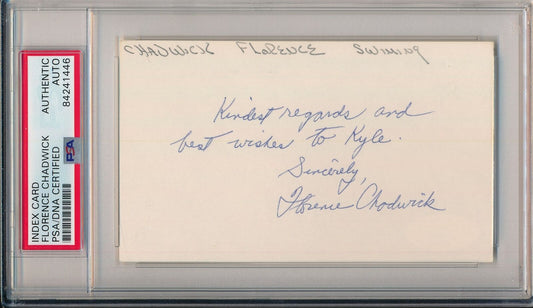 CHADWICK FLORENCE SWIMING
Kindest regards and
best wishes to Kyle.
Sincerely,
Florence Chadwick
INDEX CARD
FLORENCE CHADWICK
PSA/DNA CERTIFIED
PSA
AUTHENTIC
AUTO
84241446